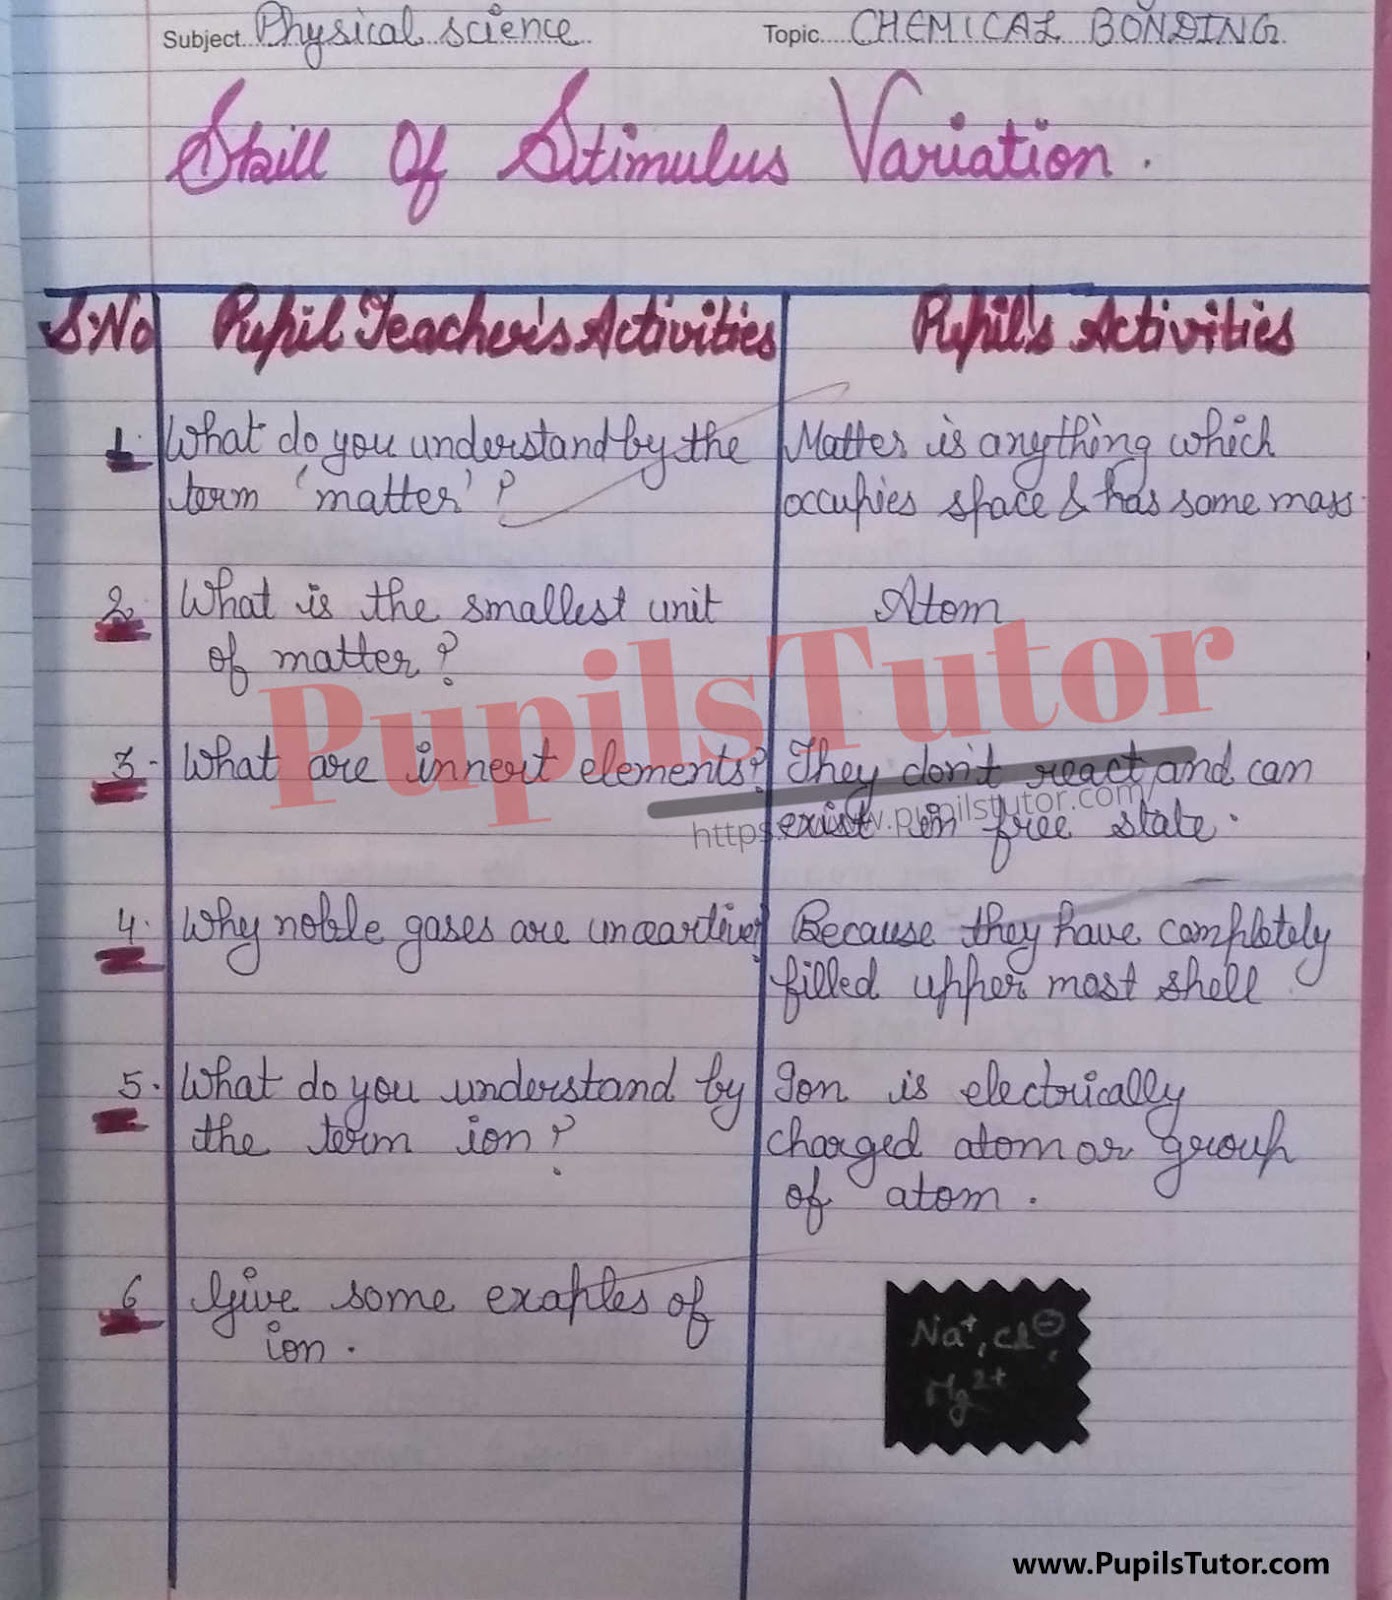 Subject Physical science Topic CHEMICAL BONDING
Skill Of Stimulus Variation.
S.No Pupil Teacher's Activities Pupil's Activities
1. What do you understand by the
term 'matter'?
Matter is anything which
occupies space & has some mass.
2. What is the smallest unit
of matter?
Atom
PupilsTutor
3. What are innert elements?
They don't react and can
exist in free state.
https://www.pupilstutor.com/
4. Why noble gases are uncartive?
Because they have completely
filled upper most shell.
5. What do you understand by
the term ion?
Ion is electrically
charged atom or group
of atom.
6 Give some exaples of
ion.
Na⁺, Cl⊖,
Mg²⁺
www.PupilsTutor.com